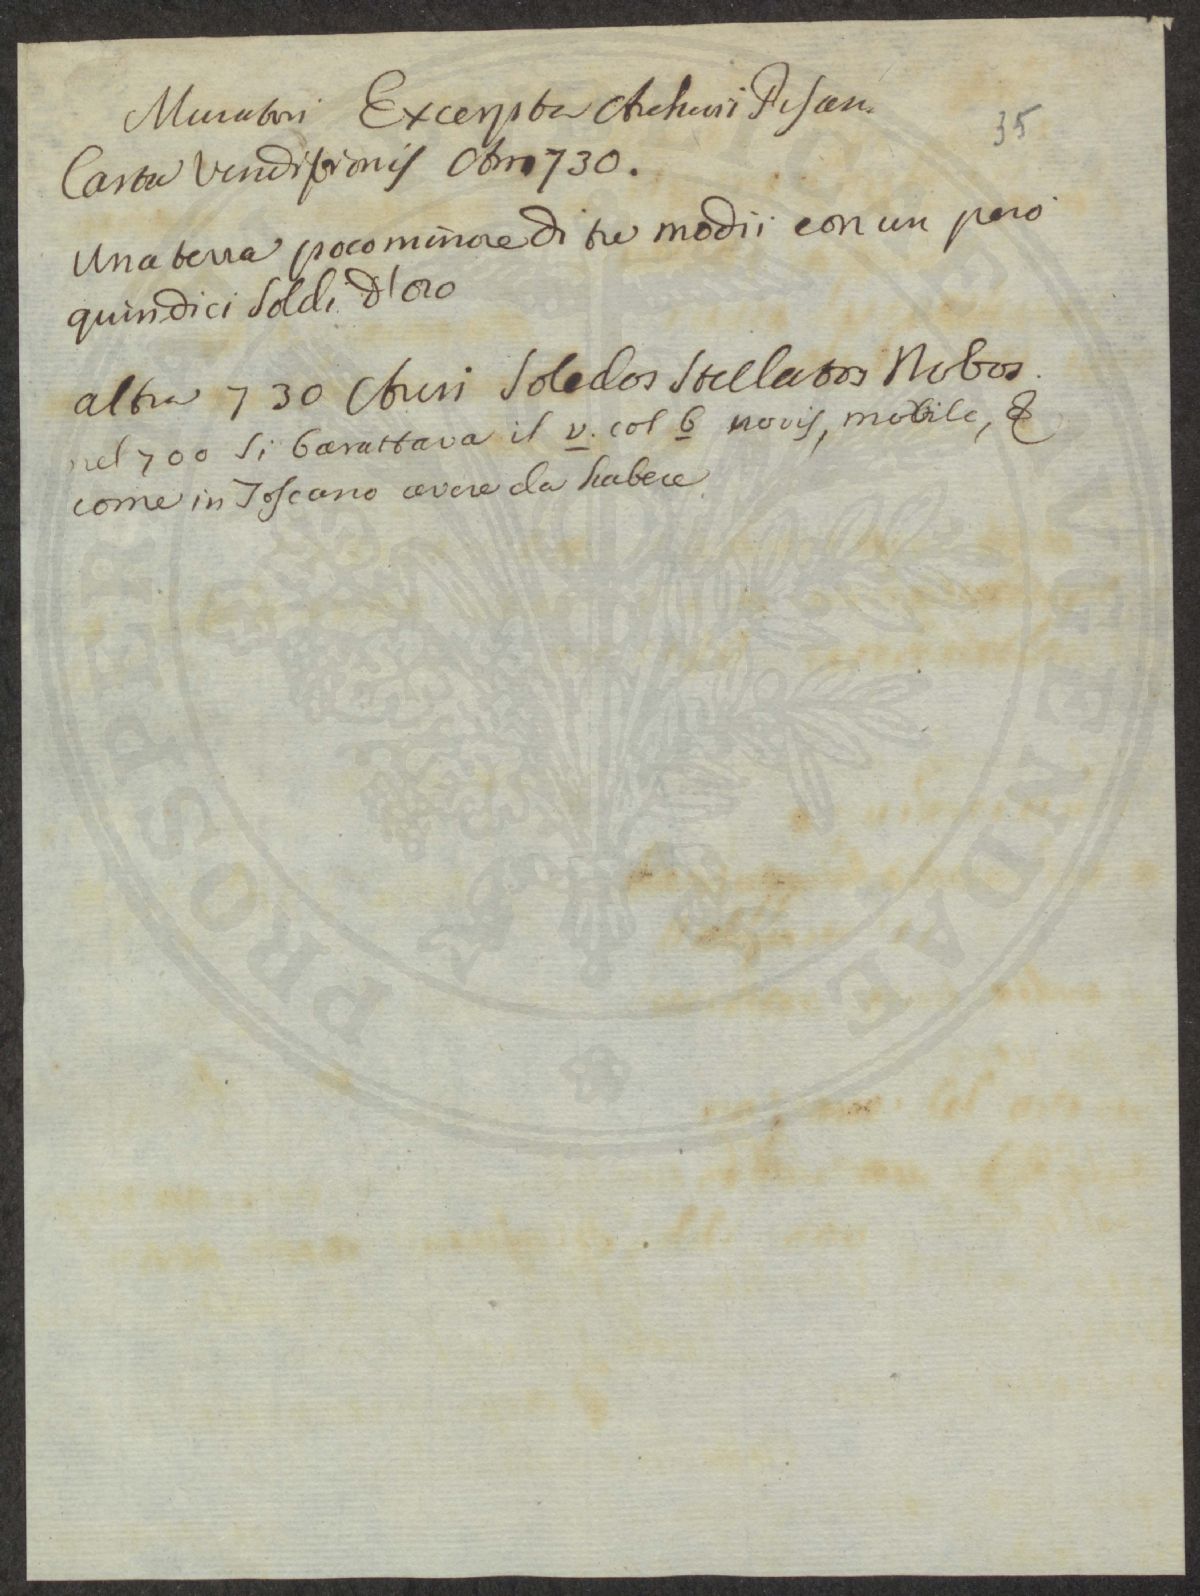 Muratori Excerpta Archivii Pisan.
35
Carta Venditionis Ann 730.
Una terra poco minore di tre modii con un pero
quindici Soldi d'oro
altra 730 Auri Soledos Stellatos Nobos.
nel 700 si barattava il v. col b novis, mobile, &
come in Toscano avere da habere
PROSPER AE VUENDAE